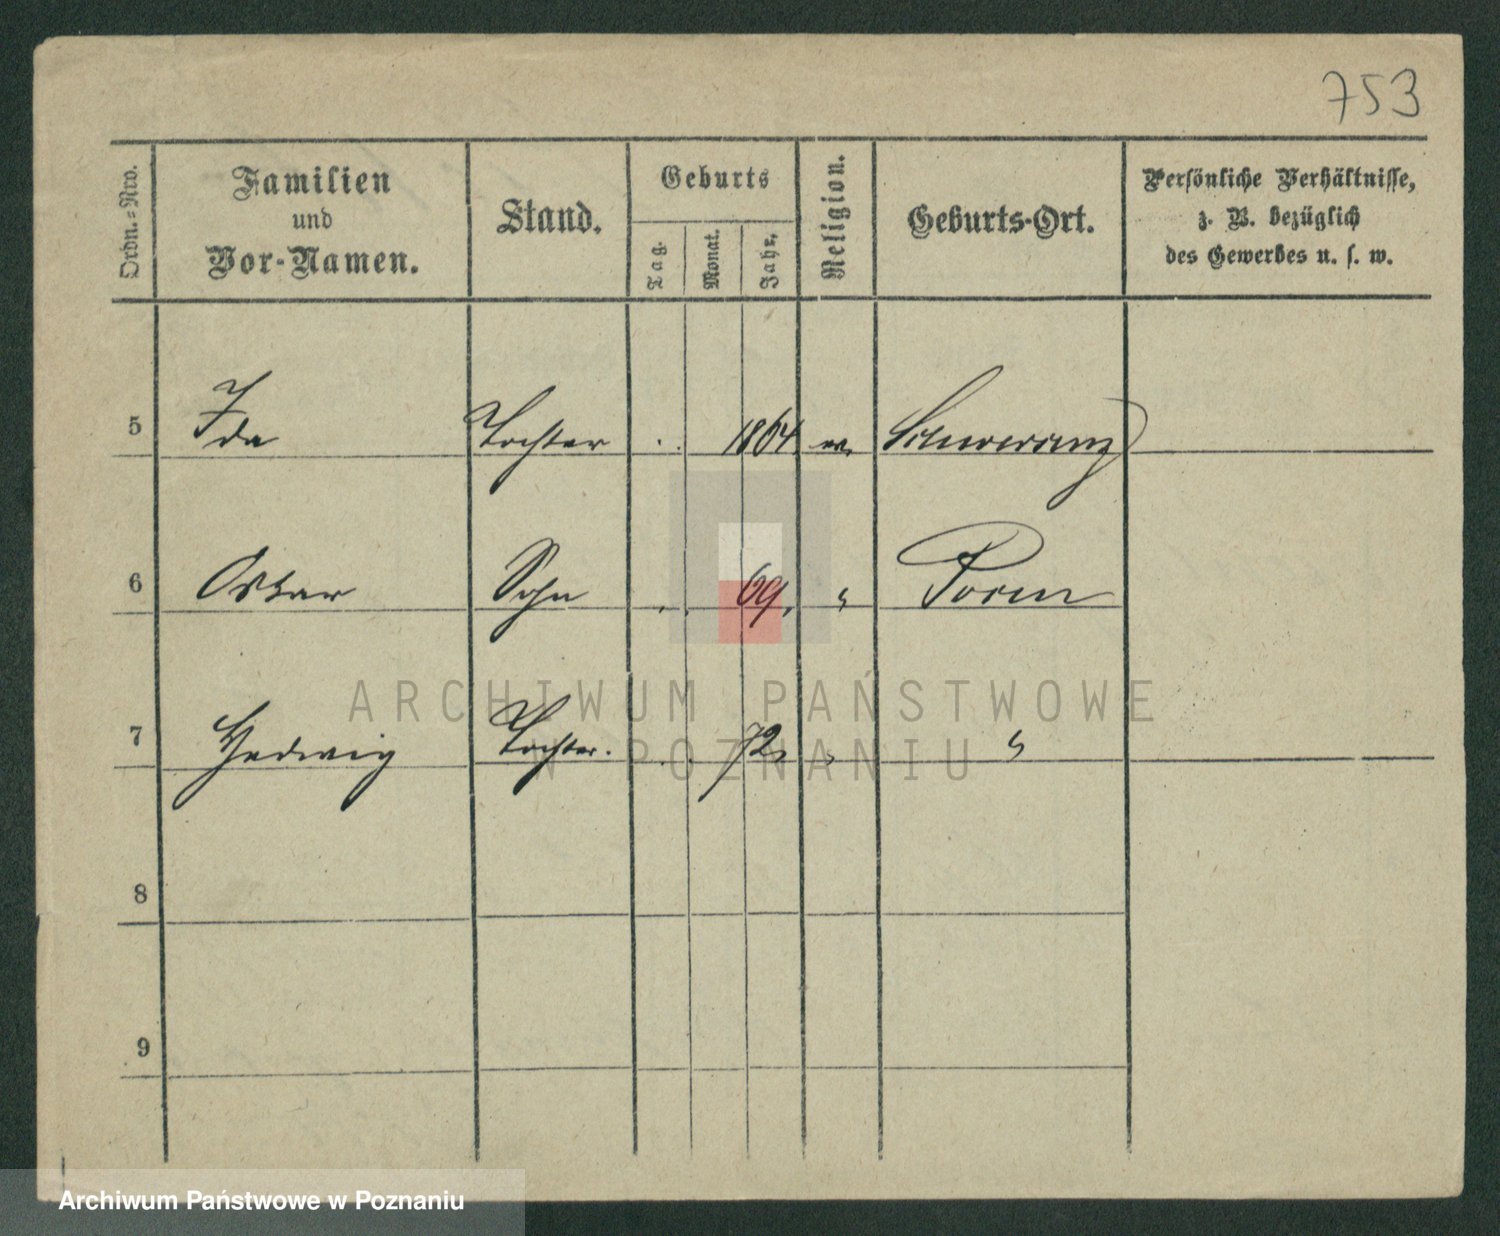 753
Ordn.-Nro.
Familien
und
Vor-Namen.
Stand.
Geburts
Tag.
Monat.
Jahr.
Religion.
Geburts-Ort.
Persönliche Verhältnisse,
z. B. bezüglich
des Gewerbes u. s. w.
5 Ida Tochter . . 1864 ev.
6 Oskar Sohn . . 69. "
7 Hedwig Tochter. . . 72. " "
8
9
ARCHIWUM PAŃSTWOWE
W POZNANIU
Archiwum Państwowe w Poznaniu